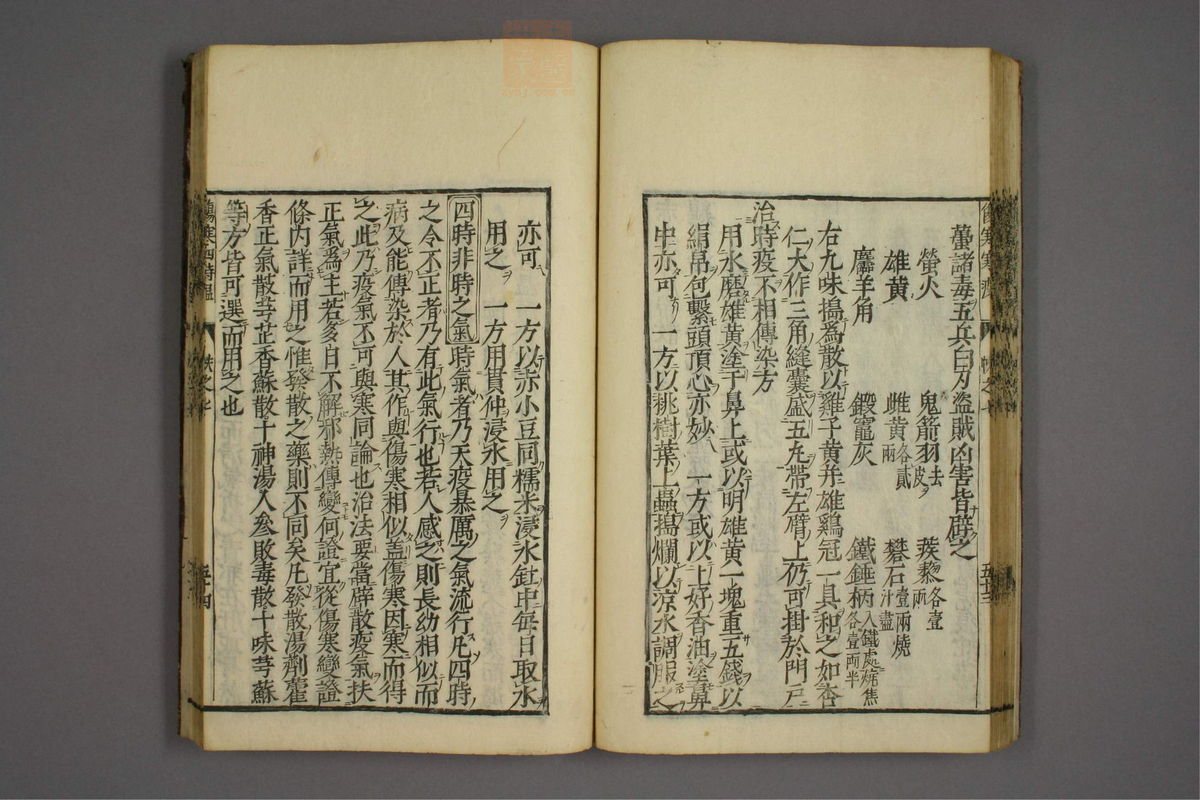 蠆諸毒五兵白刃盜賊凶害皆辟之
螢火 鬼箭羽去皮 蒺藜各壹兩
雄黃 雌黃各貳兩 礬石壹兩燒汁盡
羚羊角 鍛竈灰 鐵錘柄入鐵處燒焦各壹兩半
右九味搗為散以雞子黃并雄鷄冠一具和之如杏
仁大作三角縫囊盛五丸帶左臂上仍可掛於門戶
治時疫不相傳染方
用水磨雄黃塗于鼻上或以明雄黃一塊重五錢以
絹帛包繫頭頂心亦妙 一方或以上好香油塗鼻
中亦可 一方以桃樹葉上蟲搗爛以凉水調服之
亦可 一方以赤小豆同糯米浸水缸中每日取水
用之 一方用貫仲浸水用之
四時非時之氣 時氣者乃天疫暴厲之氣流行凡四時
之令不正者乃有此氣行也若人感之則長幼相似而
病及能傳染於人其作與傷寒相似盖傷寒因寒而得
之此乃疫氣不可與寒同論也治法要當辟散疫氣扶
正氣為主若多日不解邪熱傳變何證宜從傷寒變證
條內詳而用之惟發散之藥則不同矣凡發散湯劑藿
香正氣散芎芷香蘇散十神湯人參敗毒散十味芎蘇
等方皆可選而用之也
傷寒四時溫